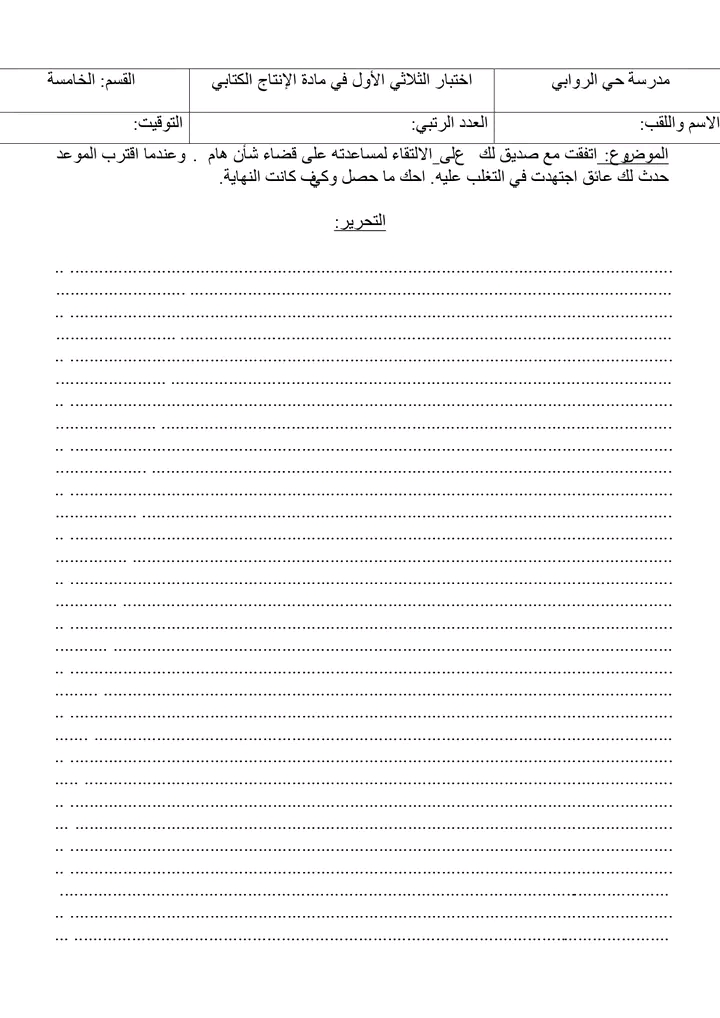 مدرسة حي الروابي اختبار الثلاثي الأول في مادة الإنتاج الكتابي القسم: الخامسة
الاسم واللقب: العدد الرتبي: التوقيت:
الموضوع: اتفقت مع صديق لك على الالتقاء لمساعدته على قضاء شأن هام . وعندما اقترب الموعد
حدث لك عائق اجتهدت في التغلب عليه. احك ما حصل وكيف كانت النهاية.
التحرير: